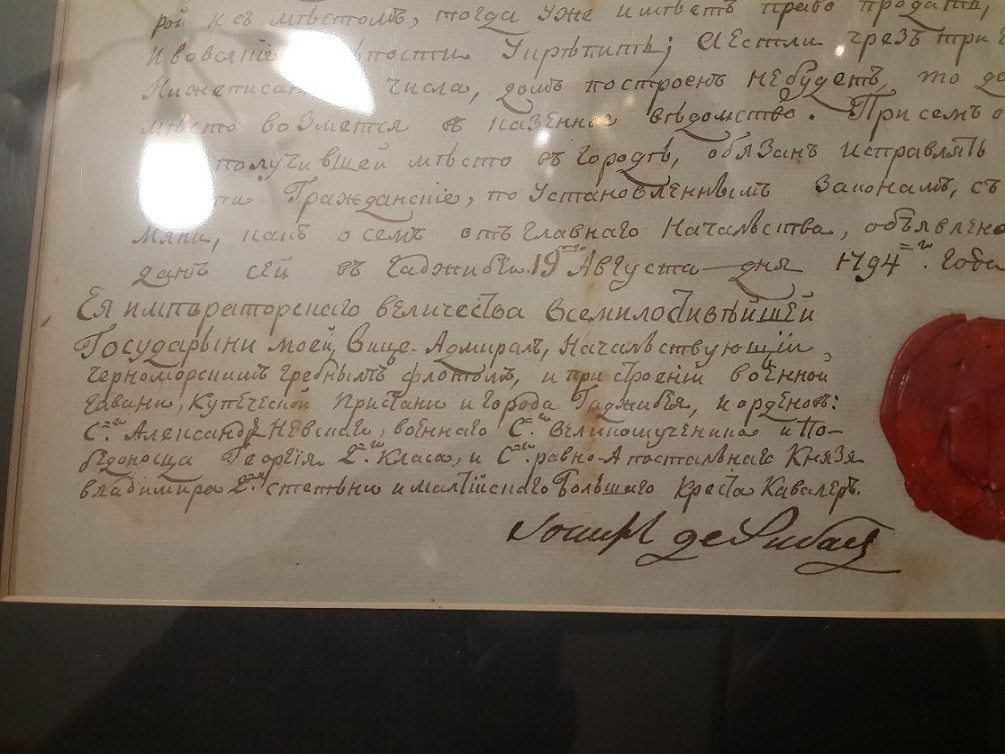 рой и съ мѣстомъ, тогда уже имѣетъ право продать,
и во всякіе ѣпости Укрѣпить; А Естли чрезъ три
Нижеписан числа, домъ построенъ не будетъ, то
мѣсто возмется въ казенное вѣдомство. При семъ
получившей мѣсто въ городѣ, обязанъ исправлять
ти Гражданскіе, по Установленнымъ Законамъ, съ
мяни, какъ о семъ отъ главнаго Начальства, объявлено
данъ сей въ Гаджибеи. 19=го Августа дня 1794=го. Года
Ея императорскаго величества Всемилостивѣйшей
Государыни моей, Вице-Адмиралъ, Начальствующій
черноморскимъ гребнымъ флотомъ, и при строеніи военной
гавани, Купеческой Пристани и города Гаджибея, и орденовъ:
С=го Александра Невскаго, военнаго С=го великомученика и По-
бѣдоносца Георгія 2=го Класа, и С=го равно-Апостальнаго Князя
владимира 2=й степени и малтійскаго Большаго креста Кавалеръ.
Іосифъ де Рибасъ